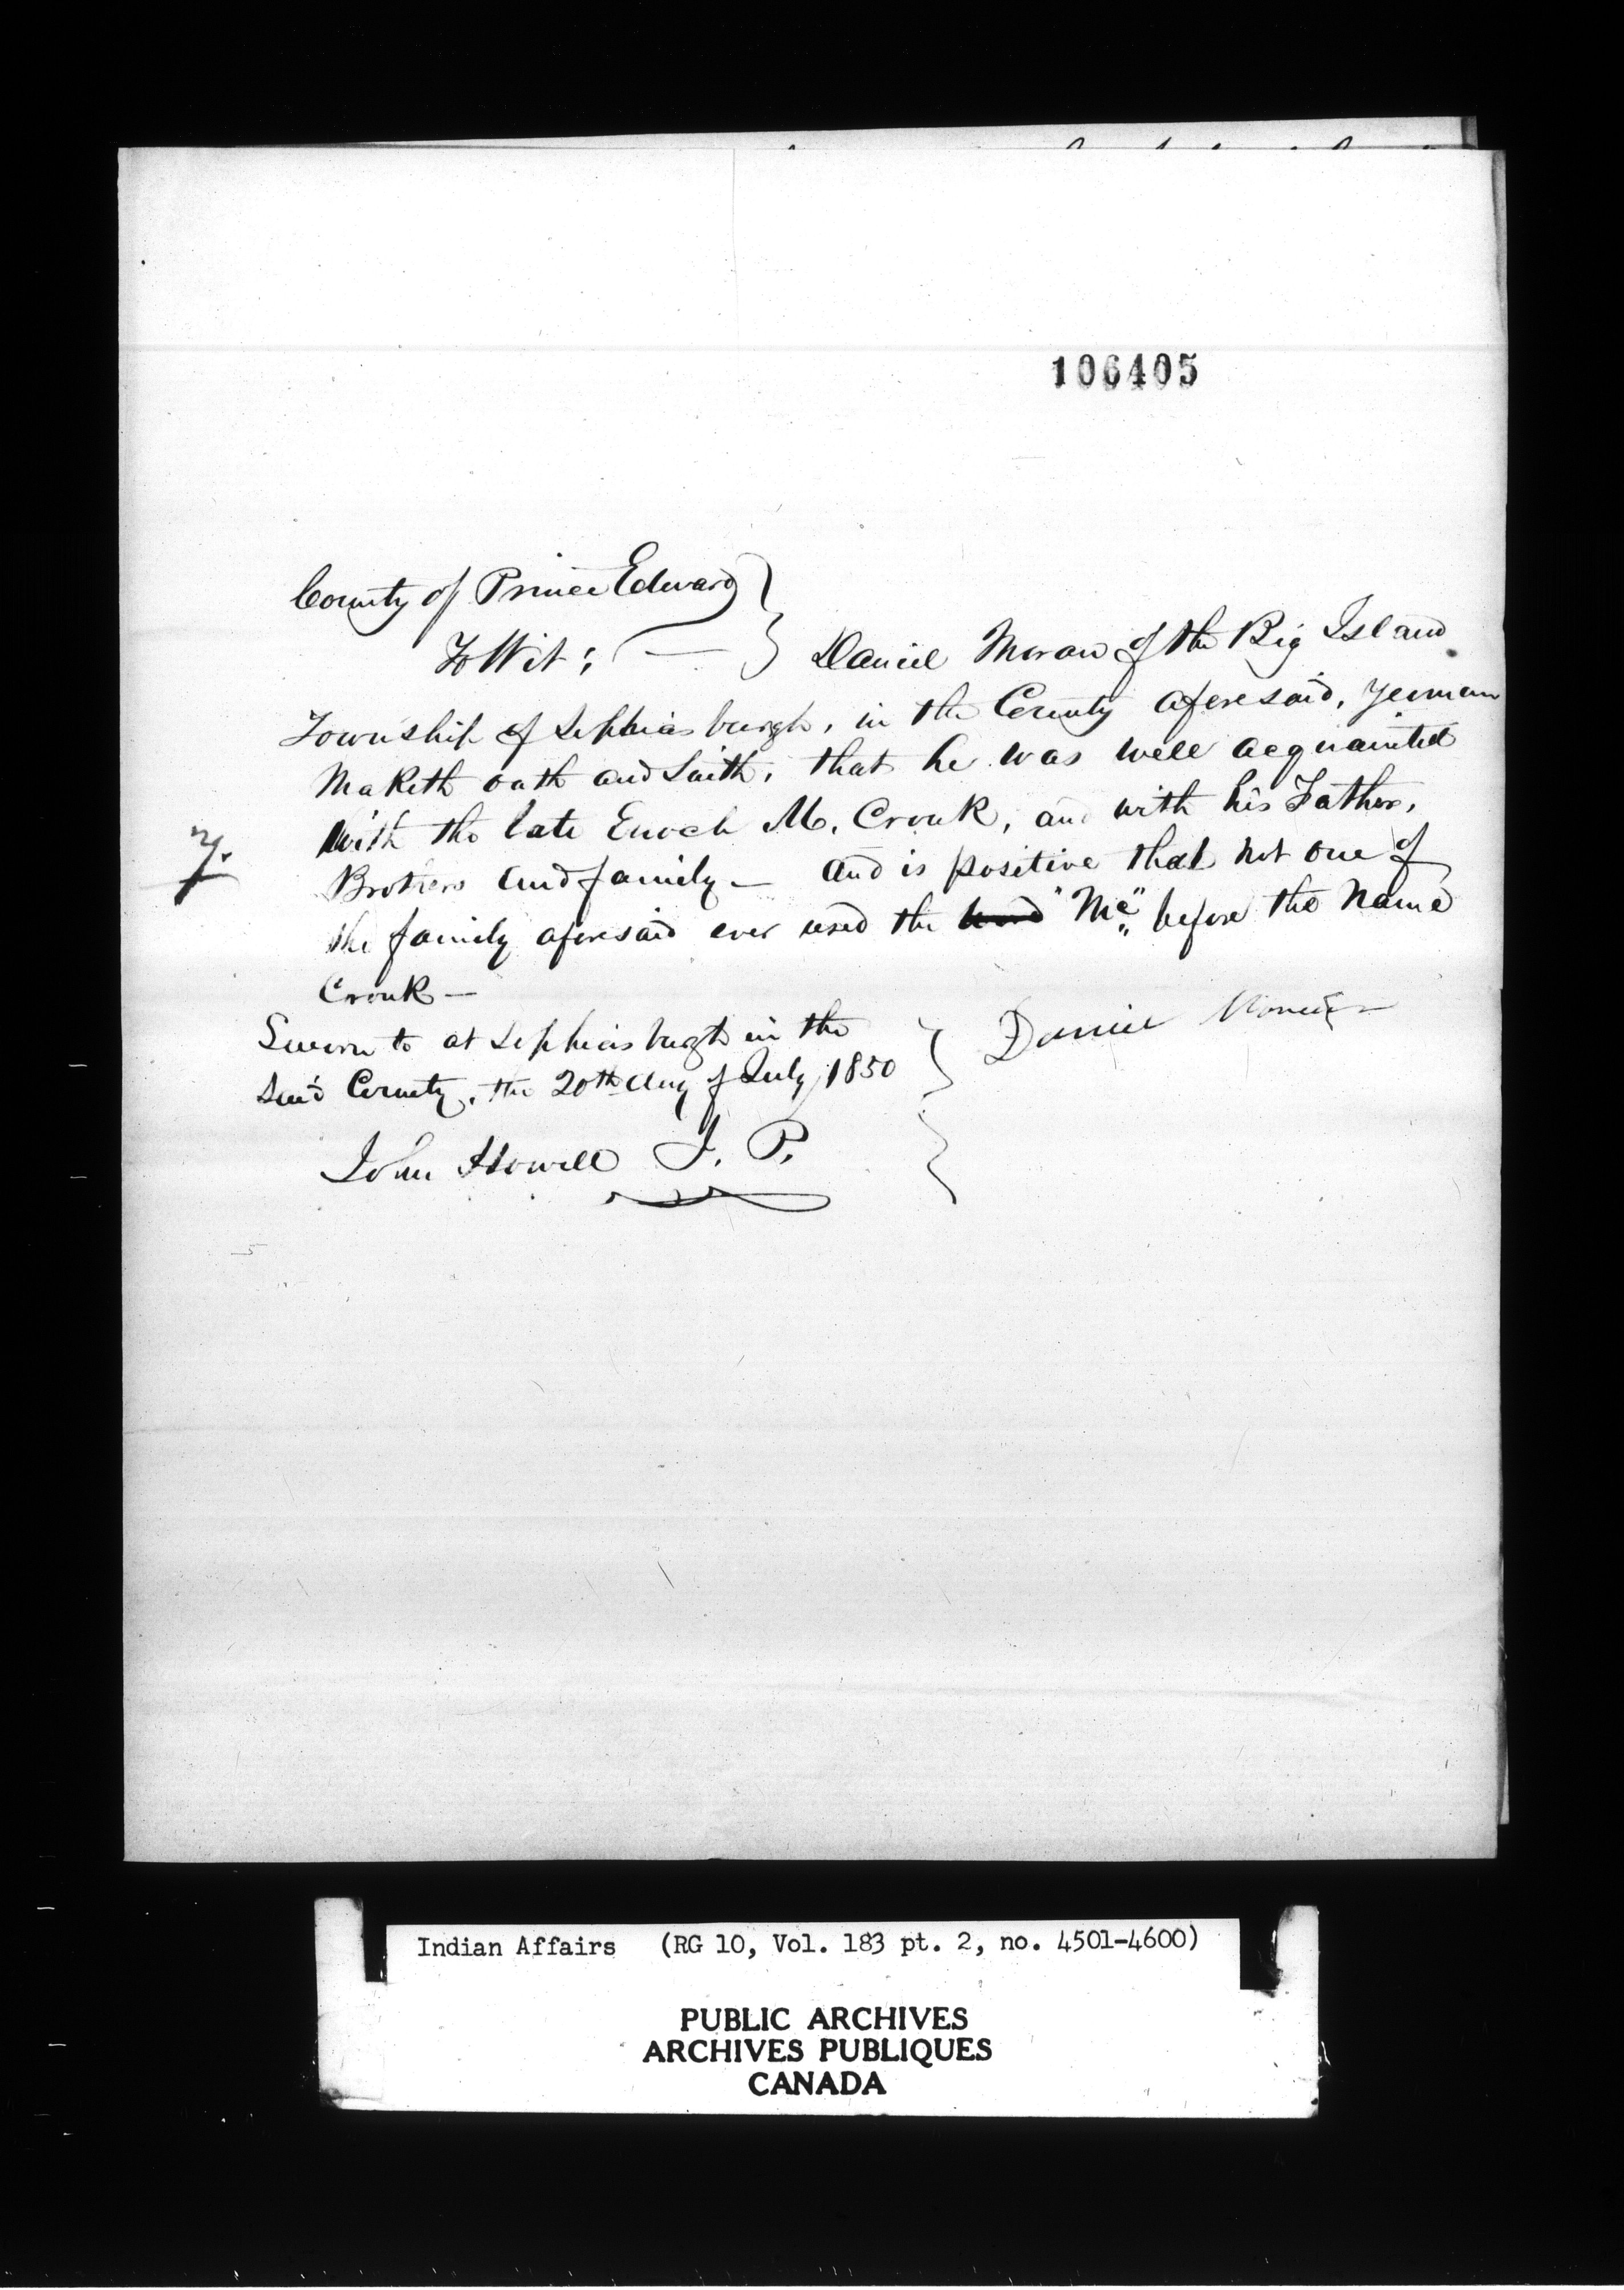 106405
County of Prince Edward }
To Wit; — } Daniel Moran of the Big Island
Township of Sophiasburgh, in the County aforesaid, Yeoman
Maketh oath and Saith, that he was well acquainted
With the late Enoch M. Cronk, and with his Father,
7. Brothers and family — and is positive that not one of
the family aforesaid ever used the "Mc" before the Name
Cronk —
Sworn to at Sophiasburgh in the } Daniel
said County, the 20th day of July 1850
John Howell J. P.
Indian Affairs (RG 10, Vol. 183 pt. 2, no. 4501-4600)
PUBLIC ARCHIVES
ARCHIVES PUBLIQUES
CANADA